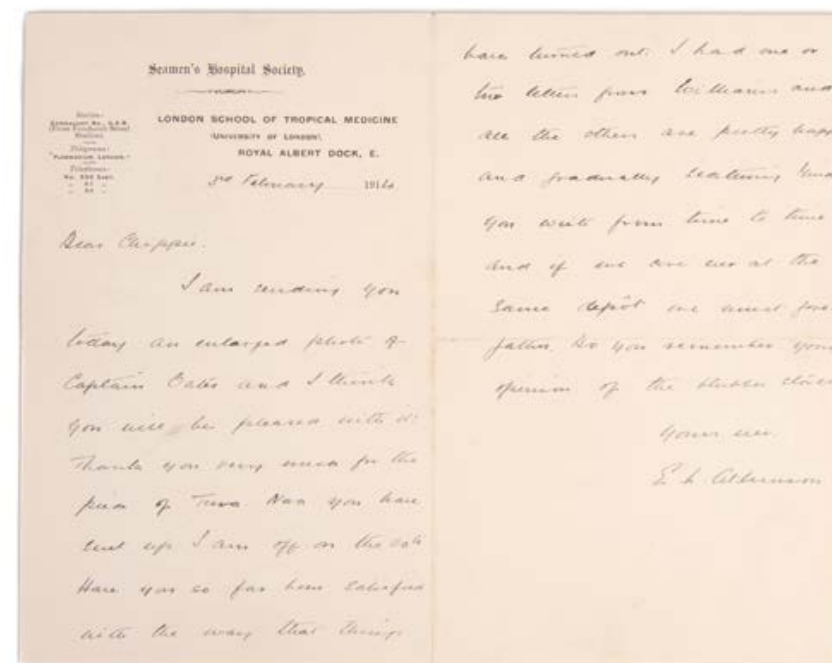 Seamen's Hospital Society.
LONDON SCHOOL OF TROPICAL MEDICINE
(UNIVERSITY OF LONDON),
ROYAL ALBERT DOCK, E.
Station:
Connaught Rd., G.E.R.
(From Fenchurch Street
Station)
Telegrams:
London."
Telephones:
3rd February 191
Dear Chippie.
I am sending you
today an enlarged photo of
Captain Oates and I think
you will be pleased with it.
Thanks you very much for the
piece of Terra Nova you have
sent up I am off on the
Have you so far been satisfied
with the way that things
have turned out. I had one or
two letters from Williams and
all the others are pretty happ
and gradually
you write from time to time
and if we are ever at the
same depôt we must
father. Do you remember your
opinion of the blubber stove
Yours ever.
E. L. Atkinson